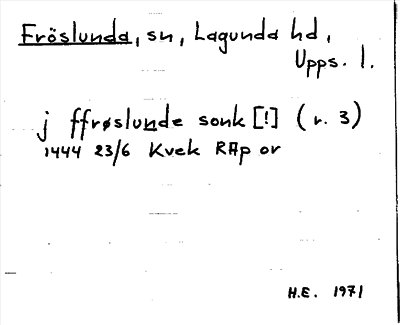 Fröslunda, sn, Lagunda hd,
Upps. l.
j ffrøslunde sonk [!] (r. 3)
1444 23/6 Kvek RAp or
H.E. 1971